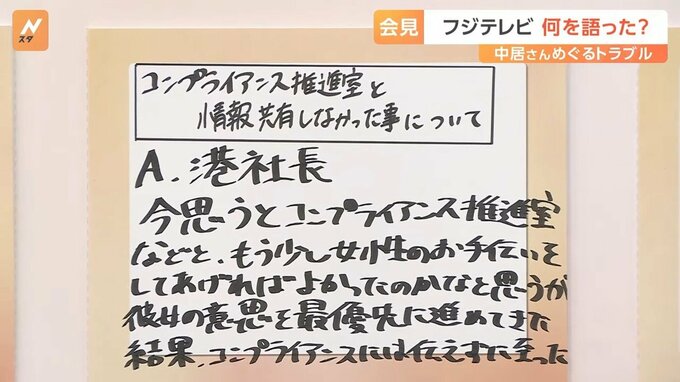 Nスタ
会見
フジテレビ 何を語った?
中居さんめぐるトラブル
コンプライアンス推進室と
情報共有しなかった事について
A.港社長
今思うとコンプライアンス推進室
などと、もう少し女性のお手伝いを
してあげればよかったのかなと思うが
彼女の意思を最優先に進めてきた
結果、コンプライアンスには伝えずに至った